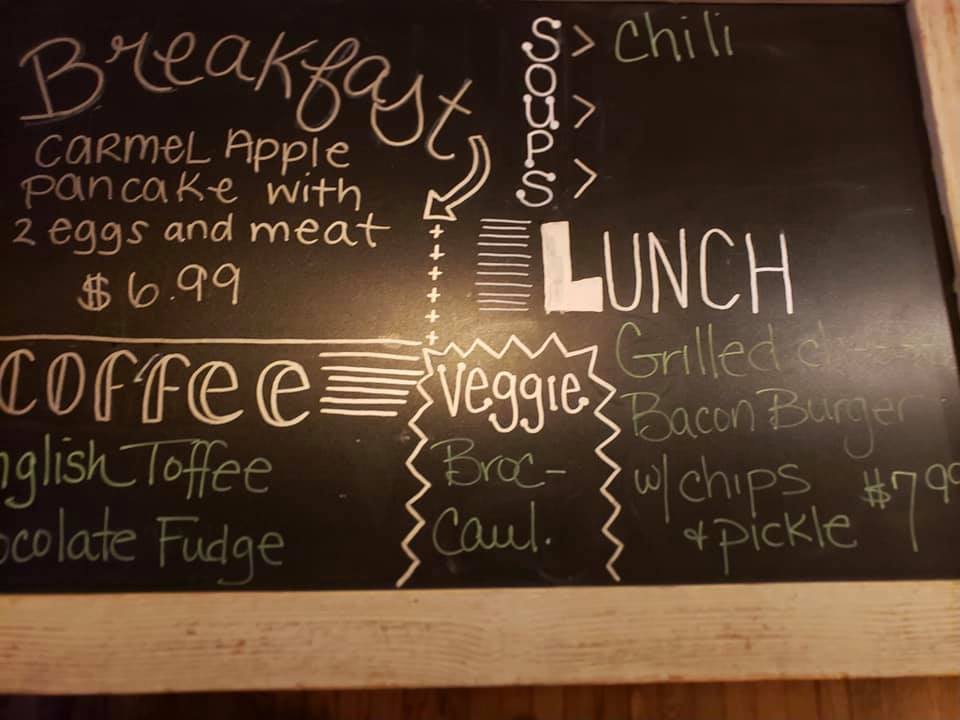 Breakfast
CARMEL Apple
pancake with
2 eggs and meat
$6.99
SOUPS
> Chili
>
>
LUNCH
Grilled
Bacon Burger
w/ chips $7.99
& pickle
COFFEE
nglish Toffee
ocolate Fudge
Veggie
Broc-
Caul.